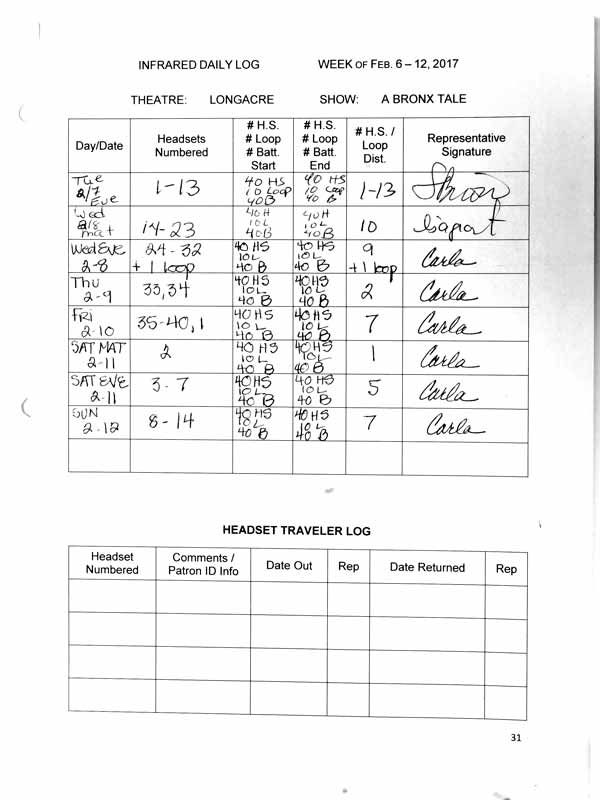 INFRARED DAILY LOG WEEK OF FEB. 6 – 12, 2017
THEATRE: LONGACRE SHOW: A BRONX TALE
Day/Date Headsets Numbered # H.S. # Loop # Batt. Start # H.S. # Loop # Batt. End # H.S. / Loop Dist. Representative Signature
Tue 2/7 Eve 1-13 40 HS 10 Loop 40B 40 HS 10 Loop 40 B 1-13
Wed 2/8 mat 14-23 40H 10L 40B 40H 10L 40B 10
Wed EVE 2-8 24-32 + 1 loop 40 HS 10L 40 B 40 HS 10L 40 B 9 + 1 loop Carla
Thu 2-9 33,34 40 HS 10L 40 B 40HS 10L 40 B 2 Carla
FRI 2-10 35-40,1 40 HS 10 L 40 B 40HS 10 L 40 B 7 Carla
SAT MAT 2-11 2 40 HS 10L 40 B 40HS 10L 40 B 1 Carla
SAT EVE 2-11 3-7 40HS 10L 40 B 40 HS 10L 40 B 5 Carla
SUN 2-12 8-14 40 HS 10L 40 B 40 HS 10 L 40 B 7 Carla
HEADSET TRAVELER LOG
Headset Numbered Comments / Patron ID Info Date Out Rep Date Returned Rep
31